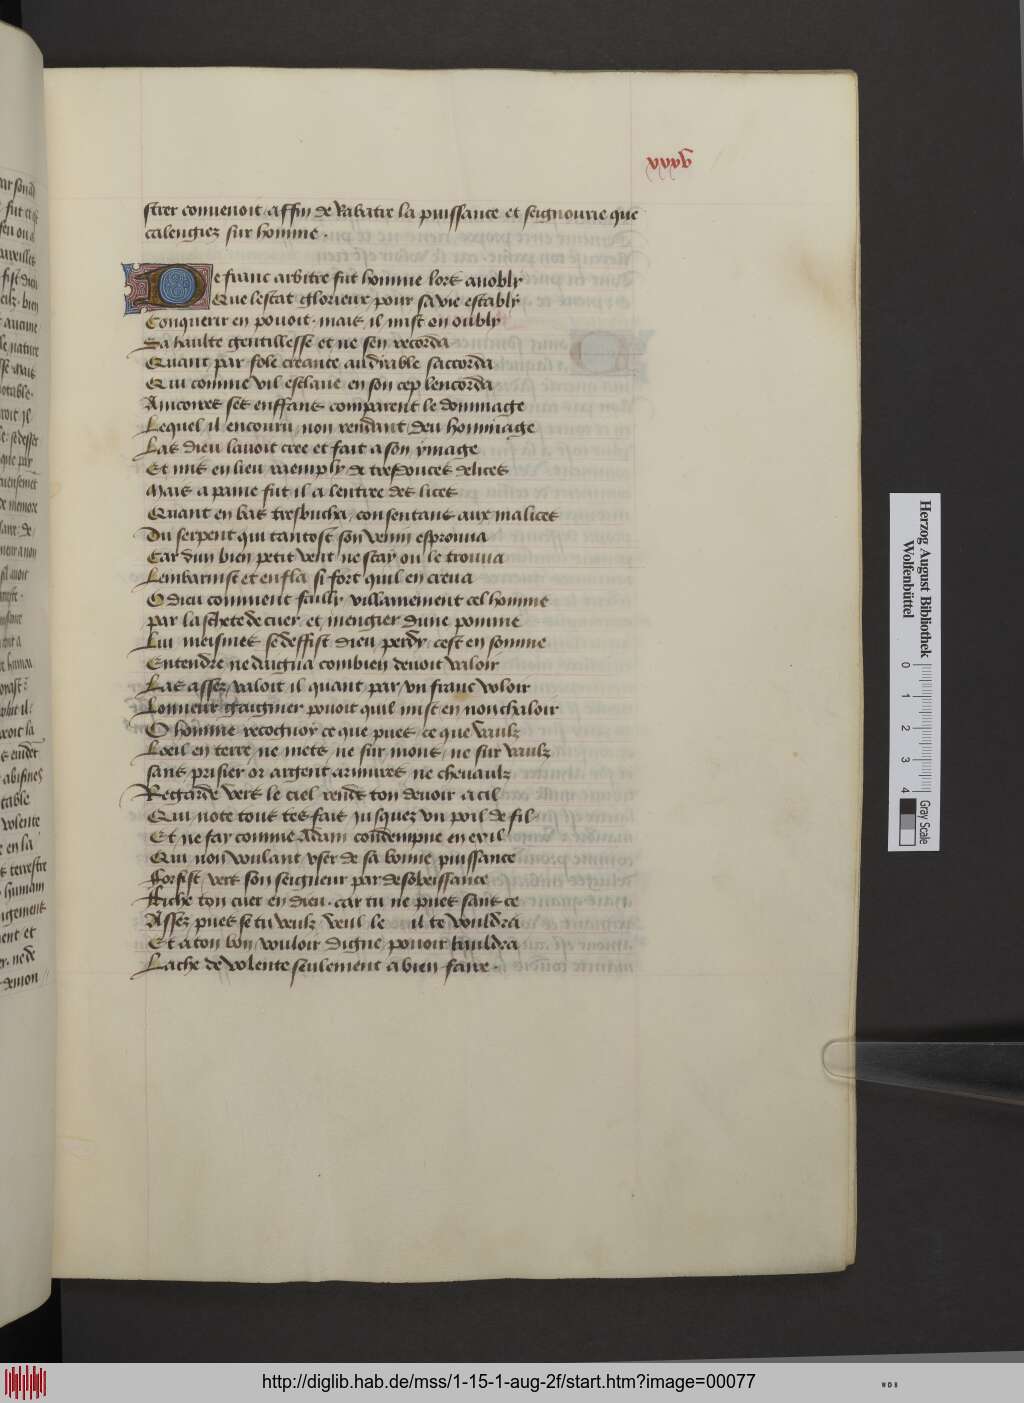 xxxv
strer convenoit affin de Rabatre la puissance et seignourie que
calengiez sur homme .
De franc arbitre fut homme lors anobly
Que lestat glorieux pour sa vie estably
Conquerir en povoit . mais il mist en oubly
Sa haulte gentillesse et ne sen recorda
Quant par fole creance au dyable saccorda
Qui comme vil esclave en son cep lencorda
Ancores ses enffans comparent le dommage
Lequel il encouru non rendant deu hommage
Las dieu lavoit cree et fait a son ymage
Et mis en lieu raemply de tresdouces delices
Mais a paine fut il a lentree des lices
Quant en bas tresbucha consentans aux malices
Du serpent qui tantost son venin esprouva
Car dun bien petit vent ne scay ou le trouva
Lembarnist et enfla si fort quil en creva
O dieu comment failly villainement cel homme
par laschete de cuer et mengier dune pomme
Lui meismes se deffist dieu perdy cest en somme
Entendre ne daigna combien devoit valoir
Las assez valoit il quant par un franc voloir
Lonneur gaignier povoit quil mist en nonchaloir
O homme recognoy ce que pues ce que vaulz
Loeil en terre ne mets ne sur mons ne sur vaulz
sans prisier or argent armures ne chevaulz
Regarde vers le ciel rends ton devoir a cil
Qui note tous tes fais jusquez un poil de fil .
Et ne fay comme Adam condempne en exil
Qui non voulant user de sa bonne puissance
Forfist vers son seigneur par desobeissance
Fiche ton cuer en dieu . car tu ne pues sans ce
Assez pues se tu veulz veul le il te vouldra
Et a ton bon vouloir digne povoir
Lache de volente seulement a bien faire .
Herzog August Bibliothek
Wolfenbüttel
0 1 2 3 4
Gray Scale
http://diglib.hab.de/mss/1-15-1-aug-2f/start.htm?image=00077
WDB